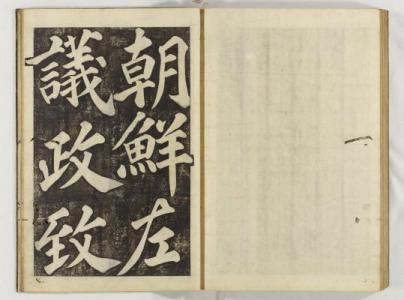 朝鮮左
議政致